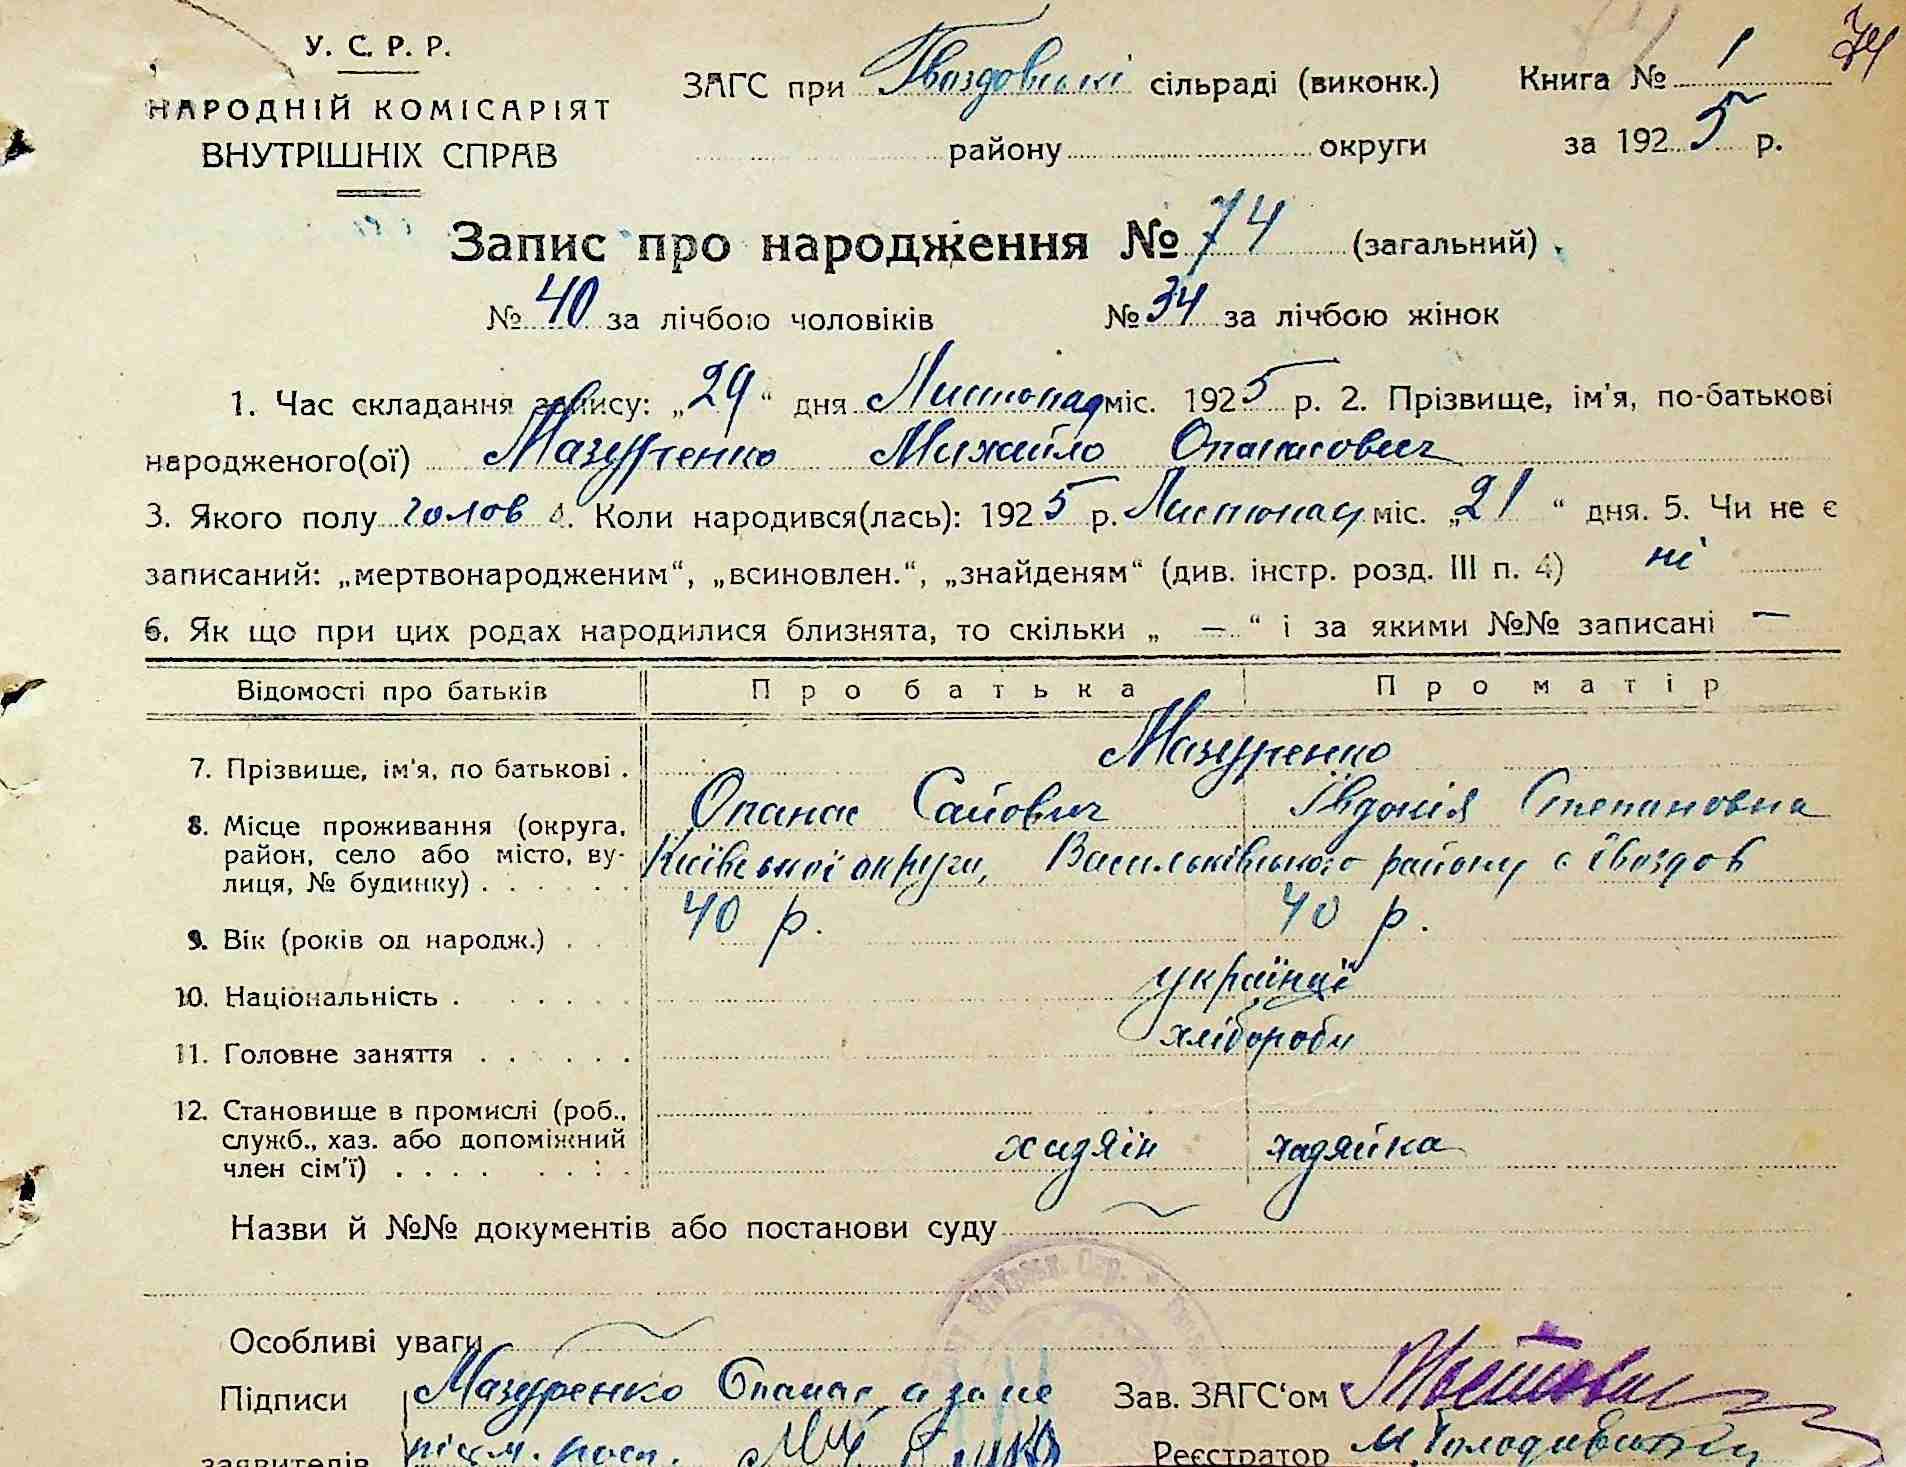 74
У. С. Р. Р.
НАРОДНІЙ КОМІСАРІЯТ
ВНУТРІШНІХ СПРАВ
ЗАГС при Гвоздовські сільраді (виконк.)
району округи
Книга № 1
за 1925 р.
Запис про народження № 74 (загальний)
№ 40 за лічбою чоловіків № 34 за лічбою жінок
1. Час складання запису: „29“ дня Листопад міс. 1925 р. 2. Прізвище, ім'я, по-батькові
народженого(ої) Мазуренко Михайло Опанасович
3. Якого полу чолов 4. Коли народився(лась): 1925 р. Листопад міс. „21“ дня. 5. Чи не є
записаний: „мертвонародженим“, „всиновлен.“, „знайденям“ (див. інстр. розд. III п. 4) ні
6. Як що при цих родах народилися близнята, то скільки „ — “ і за якими №№ записані —
Відомості про батьків Про батька Про матір
7. Прізвище, ім'я, по батькові . Мазуренко
Опанас Савович Івдокія Степановна
8. Місце проживання (округа,
район, село або місто, ву-
лиця, № будинку) . . . . . . Київської округи, Васильківського району с Гвоздов
9. Вік (років од народж.) . . 40 р. 40 р.
10. Національність . . . . . . українці
11. Головне заняття . . . . . . хлібороби
12. Становище в промислі (роб.,
служб., хаз. або допоміжний
член сім'ї) . . . . . . . хазяїн хазяйка
Назви й №№ документів або постанови суду
Особливі уваги
Підписи Мазуренко Опанас, а за не
заявителів
Зав. ЗАГС'ом
Реєстратор